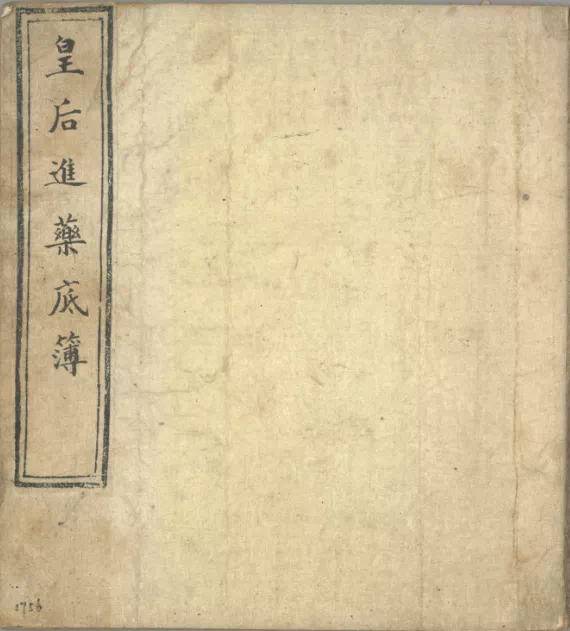 皇后進藥底簿
1756